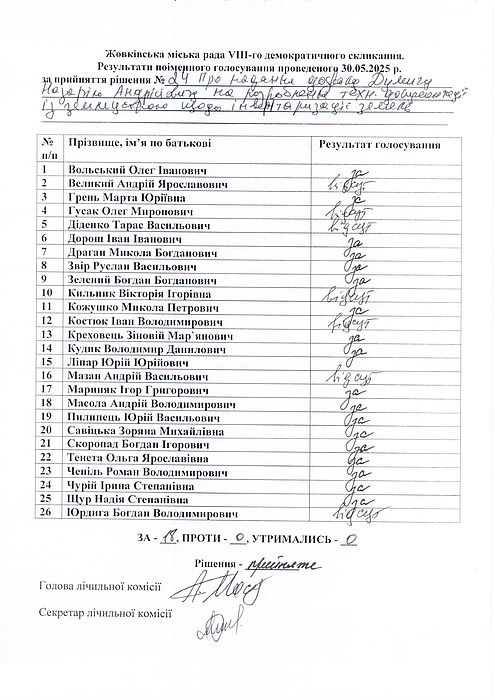 Жовківська міська рада VIII-го демократичного скликання.
Результати поіменного голосування проведеного 30.05.2025 р.
за прийняття рішення № 24 Про надання дозволу Думичу
Назарію Андрійовичу на розроблення техн. документації
із землеустрою щодо інвентаризації земель
№ п/п Прізвище, ім’я по батькові Результат голосування
1 Вольський Олег Іванович за
2 Великий Андрій Ярославович відсут
3 Грень Марта Юріївна за
4 Гусак Олег Миронович відсут
5 Діденко Тарас Васильович відсут
6 Дорош Іван Іванович за
7 Драган Микола Богданович за
8 Звір Руслан Васильович за
9 Зелений Богдан Богданович за
10 Кильник Вікторія Ігорівна відсут
11 Кожушко Микола Петрович за
12 Костюк Іван Володимирович відсут
13 Креховець Зіновій Мар`янович за
14 Кудик Володимир Данилович за
15 Ліпар Юрій Юрійович за
16 Мазан Андрій Васильович відсут
17 Мариняк Ігор Григорович за
18 Масола Андрій Володимирович за
19 Пилипець Юрій Васильович за
20 Савіцька Зоряна Михайлівна за
21 Скоропад Богдан Ігорович за
22 Тенета Ольга Ярославівна за
23 Чепіль Роман Володимирович за
24 Чурій Ірина Степанівна за
25 Щур Надія Степанівна за
26 Юрдига Богдан Володимирович відсут
ЗА - 18, ПРОТИ - 0, УТРИМАЛИСЬ - 0
Рішення - прийняте
Голова лічильної комісії
Секретар лічильної комісії